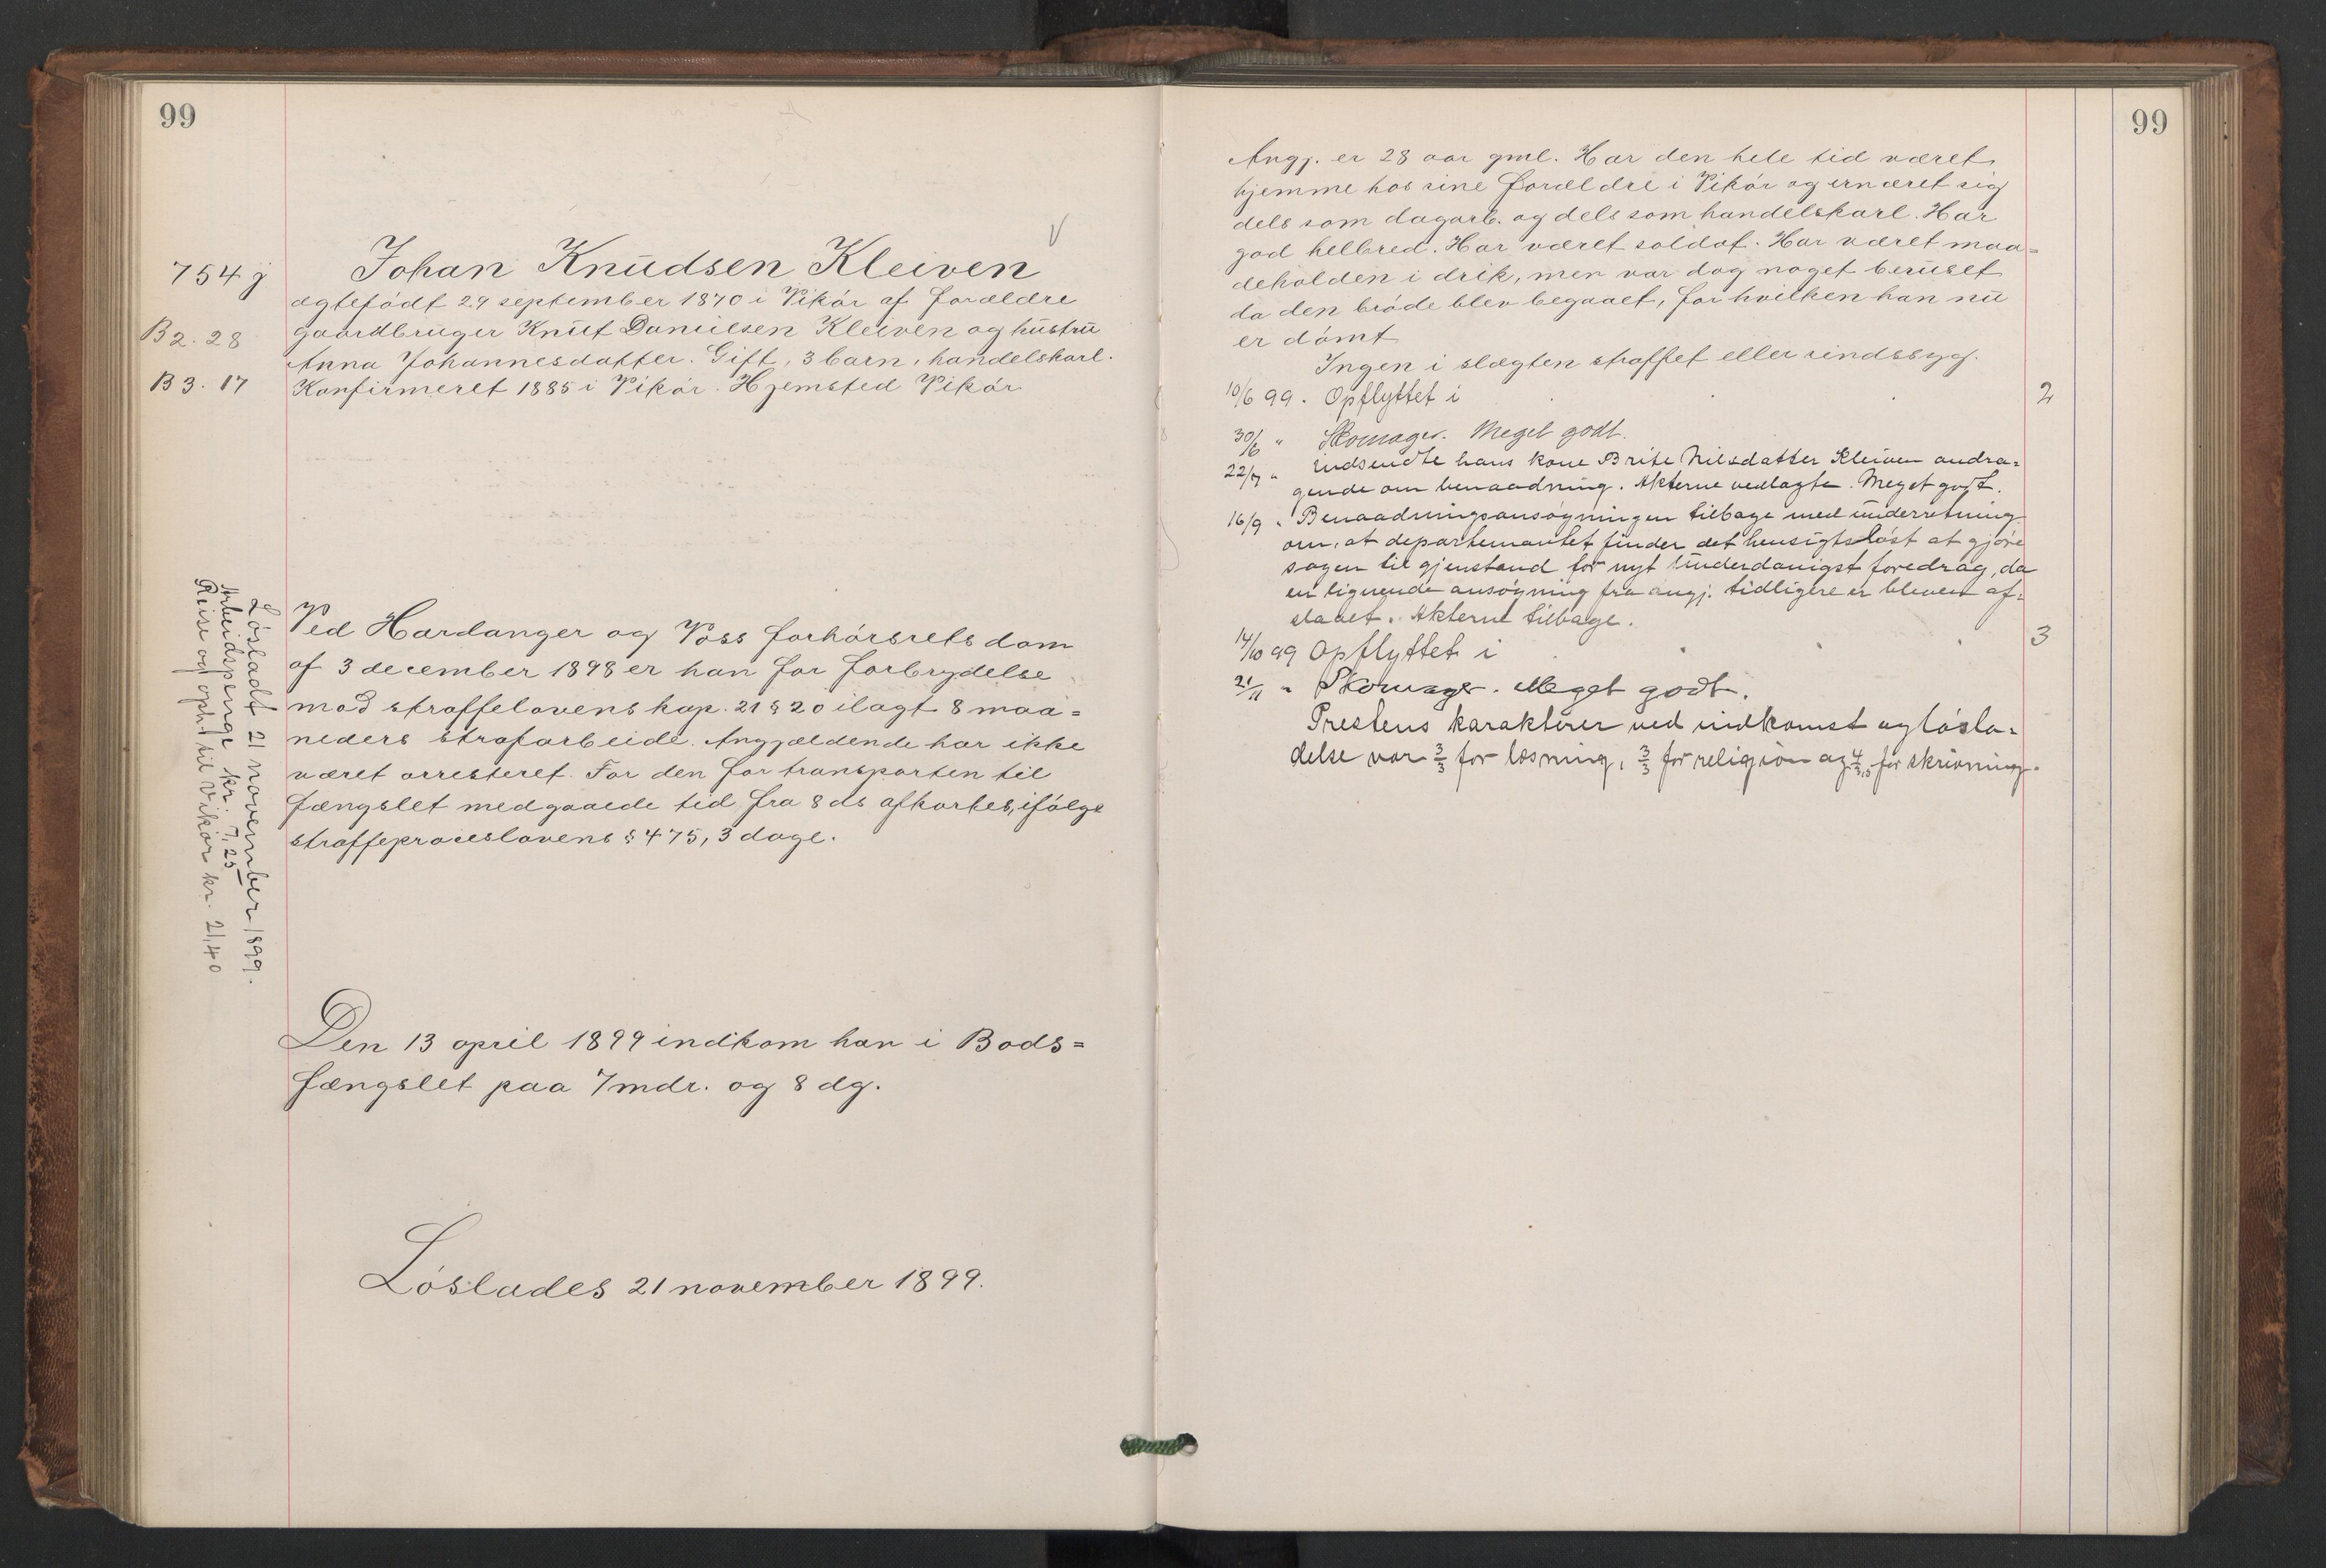 99
754 j
Johan Knudsen Kleiven
ægtefödt 29 september 1870 i Vikör af forældre
B 2. 28
gaardbruger Knut Danielsen Kleiven og hustru
Anna Johannesdatter. Gift, 3 barn, handelskarl.
B 3. 17
Konfirmeret 1885 i Vikör. Hjemsted Vikör
Ved Hardanger og Voss forhörsrets dom
af 3 december 1898 er han for forbrydelse
mod straffelovens kap. 21 § 20 ilagt 8 maa=
neders strafarbeide. Angjældende har ikke
været arresteret. For den for transporten til
fængslet medgaaede tid fra 8 ds afkortes, ifölge
straffeproceslovens § 475, 3 dage.
Lösladt 21 november 1899.
Arbeidspenge kr. 7,25
Reise og oph. til Vikör kr. 21,40
Den 13 april 1899 indkom han i Bods=
fængslet paa 7 mdr. og 8 dg.
Löslades 21 november 1899.
99
Angj. er 28 aar gml. Har den hele tid været
hjemme hos sine forældre i Vikör og ernæret sig
dels som dagarb. og dels som handelskarl. Har
god helbred. Har været soldat. Har været maa=
deholden i drik, men var dog noget beruset
da den bröde blev begaaet, for hvilken han nu
er dömt
Ingen i slægten straffet eller sindssyg.
10/6 99. Opflyttet i 2
30/6 " Skomager. Meget godt.
22/7 " indsendte hans kone Brite Nilsdatter Kleiven andra=
gende om benaadning. Akterne vedlagte. Meget godt.
16/9 " Benaadningsansögningen tilbage med underretning
om, at departementet finder det hensigtslöst at gjöre
sagen til gjenstand for nyt underdanigst foredrag, da
en lignende ansögning fra angj. tidligere er bleven af=
slaaet. Akterne tilbage.
14/10 99 Opflyttet i 3
21/11 " Skomager. Meget godt.
Prestens karakterer ved indkomst og lösla=
delse var 3/3 for læsning, 3/3 for religion og 4/3,5 for skrivning.